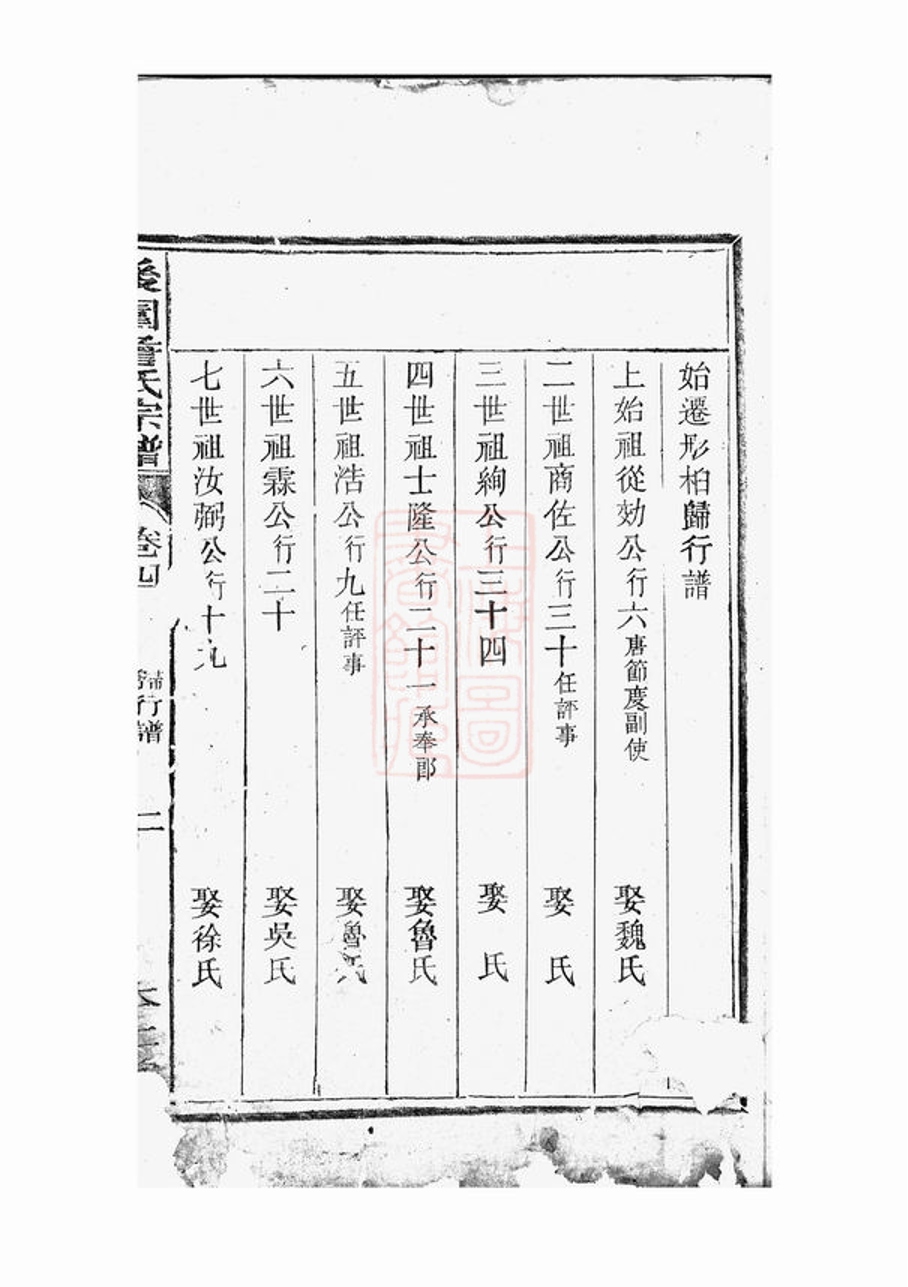 始遷形柏歸行譜
上始祖從効公行六唐節度副使 娶魏氏
二世祖商佐公行三十任評事 娶 氏
三世祖絢公行三十四 娶 氏
四世祖士隆公行二十一承奉郎 娶魯氏
五世祖浩公行九任評事 娶魯氏
六世祖霖公行二十 娶吳氏
七世祖汝弼公行十九 娶徐氏
氏宗譜 卷四 行譜 二